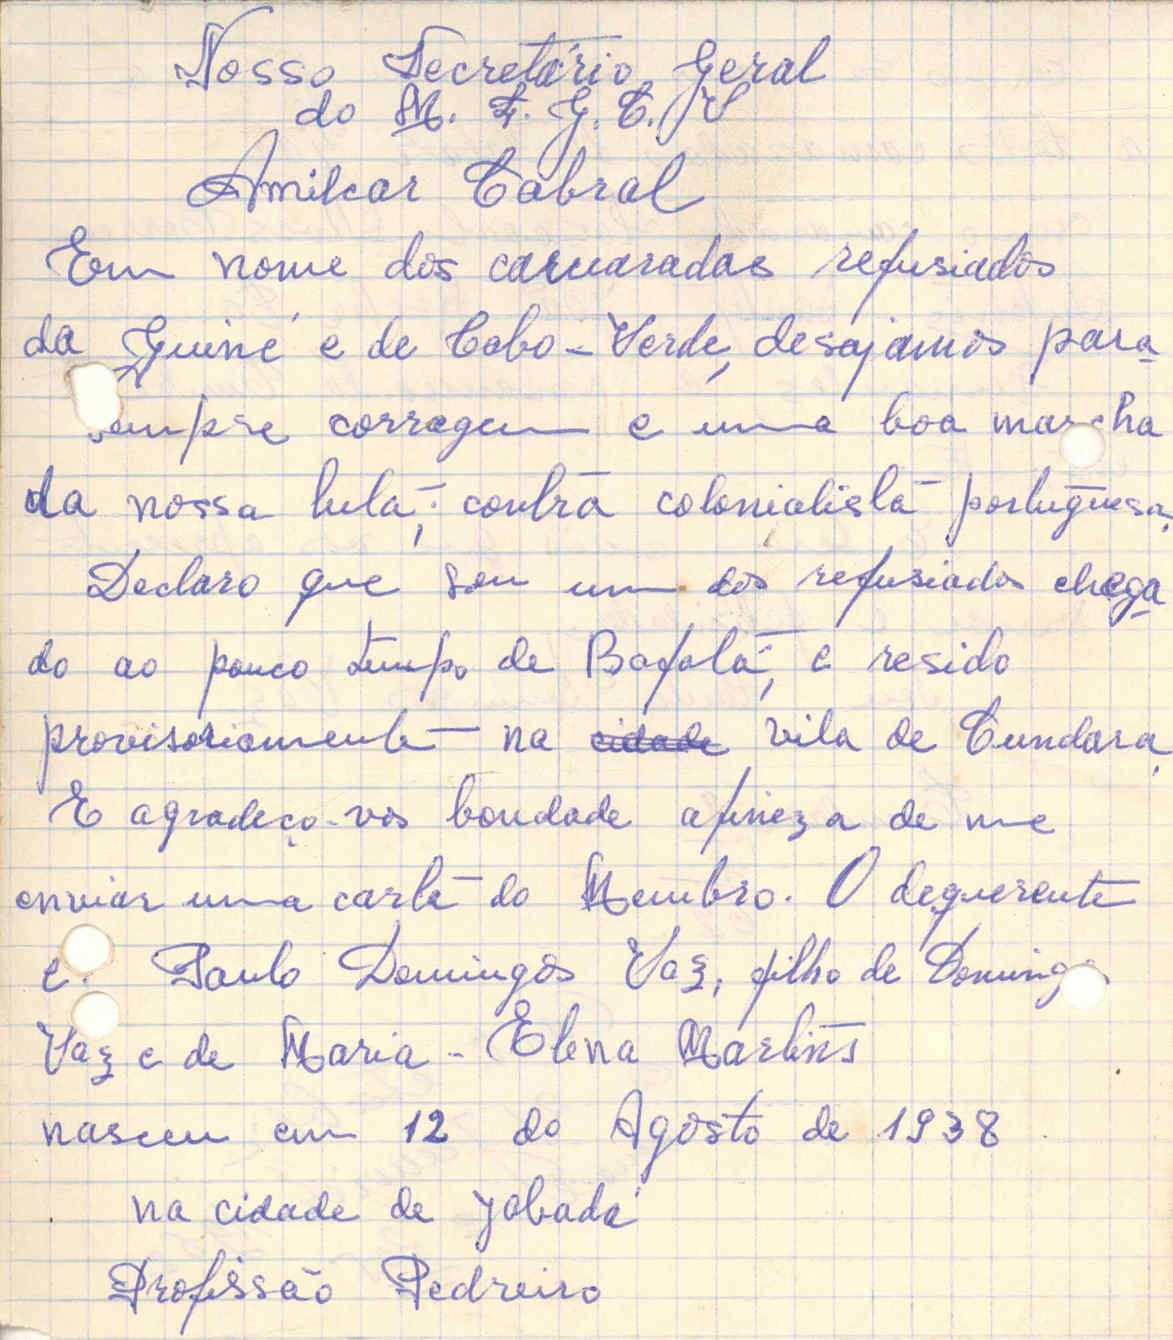 Nosso Secretário Geral
do M. F. G. C. V
Amilcar Cabral
Em nome dos camaradas refusiados
da Guiné e de Cabo-Verde, desajamos para
sempre corragem e uma boa marcha
da nossa luta; contra colonialista portuguesa,
Declaro que sou um dos refusiados chega
do ao pouco tempo de Bafatá, e resido
provisoriamente na cidade vila de Cundara,
E agradeço-vos bondade afineza de me
enviar uma carta do Membro. O dequerente
e. Paulo Domingos Vaz, filho de Domingos
Vaz e de Maria - Elena Martins
nasceu em 12 do Agosto de 1938
na cidade de Jabadá
Profissão Pedreiro